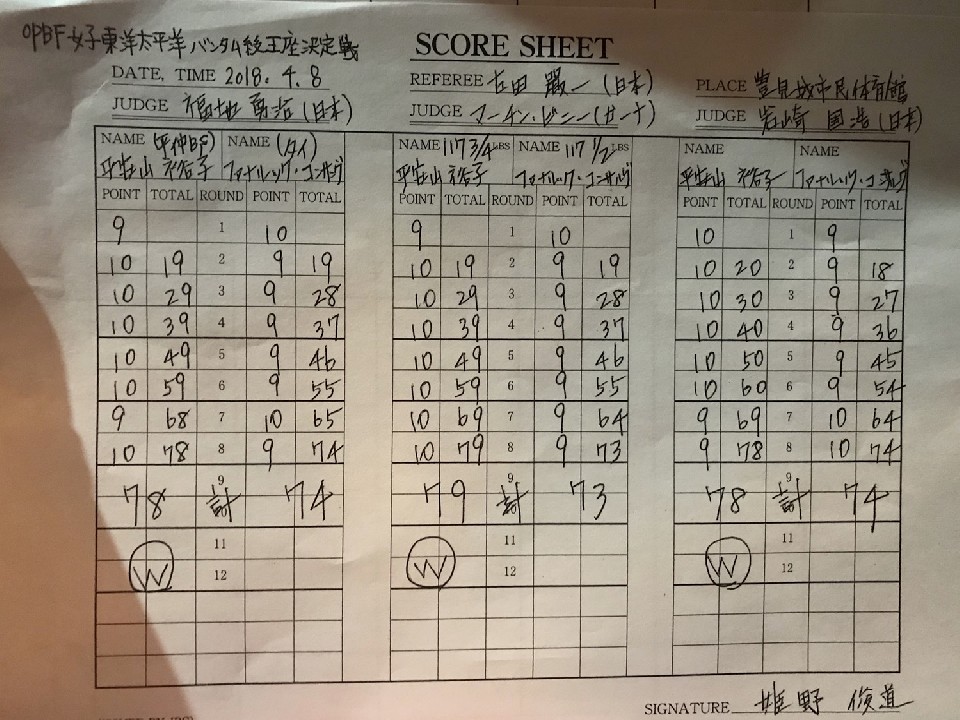 OPBF女子東洋太平洋バンタム級王座決定戦
SCORE SHEET
DATE, TIME 2018. 4. 8
REFEREE 古田 厳一 (日本)
PLACE 豊見城市民体育館
JUDGE 福地 勇治 (日本)
JUDGE マーチン・ビニー (ガーナ)
JUDGE 岩崎 国浩 (日本)
NAME NAME (タイ) NAME 117 3/4 LBS NAME 117 1/2 LBS NAME NAME
平安山 裕子 ファナルック・コンサング 平安山 裕子 ファナルック・コンサング 平安山 裕子 ファナルック・コンサング
POINT TOTAL ROUND POINT TOTAL POINT TOTAL ROUND POINT TOTAL POINT TOTAL ROUND POINT TOTAL
9 1 10 9 1 10 10 1 9
10 19 2 9 19 10 19 2 9 19 10 20 2 9 18
10 29 3 9 28 10 29 3 9 28 10 30 3 9 27
10 39 4 9 37 10 39 4 9 37 10 40 4 9 36
10 49 5 9 46 10 49 5 9 46 10 50 5 9 45
10 59 6 9 55 10 59 6 9 55 10 60 6 9 54
9 68 7 10 65 10 69 7 9 64 9 69 7 10 64
10 78 8 9 74 10 79 8 9 73 9 78 8 10 74
9 9 9
78 計 74 79 計 73 78 計 74
11 11 11
W 12 W 12 W 12
SIGNATURE 雄野 俊道